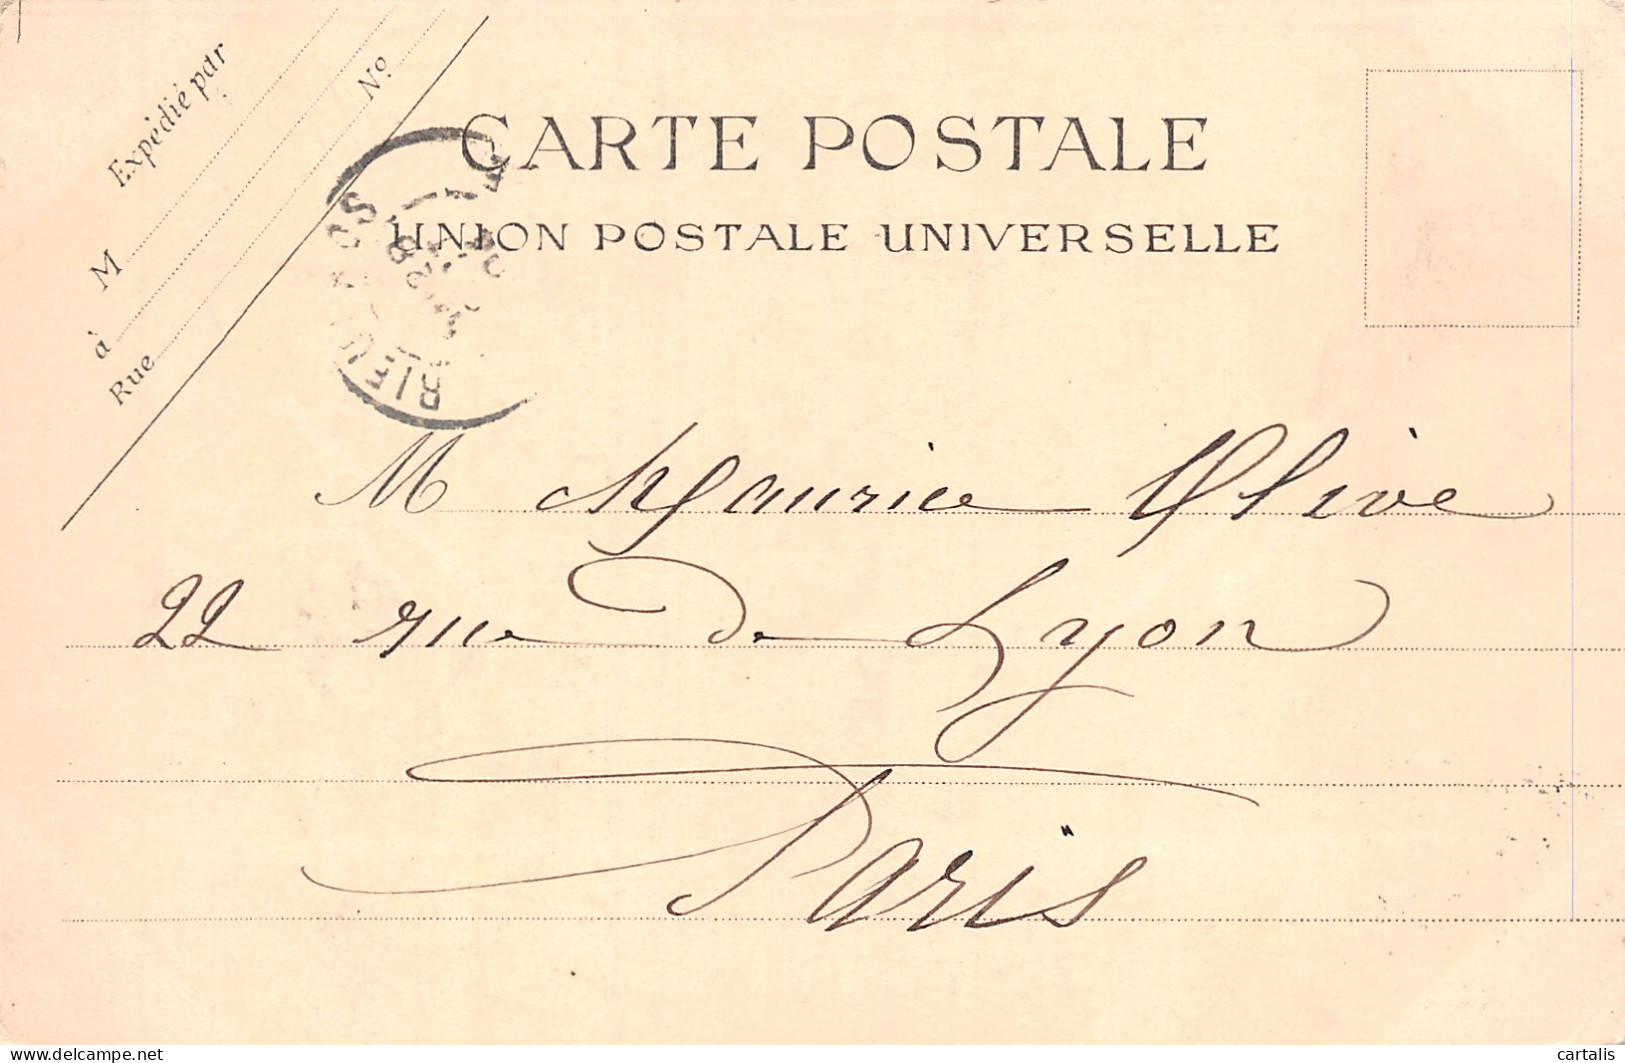 Expédié par
M
à
Rue
Nº
CARTE POSTALE
UNION POSTALE UNIVERSELLE
M Maurice Olive
22 rue De Lyon
Paris
delcampe.net
cartalis